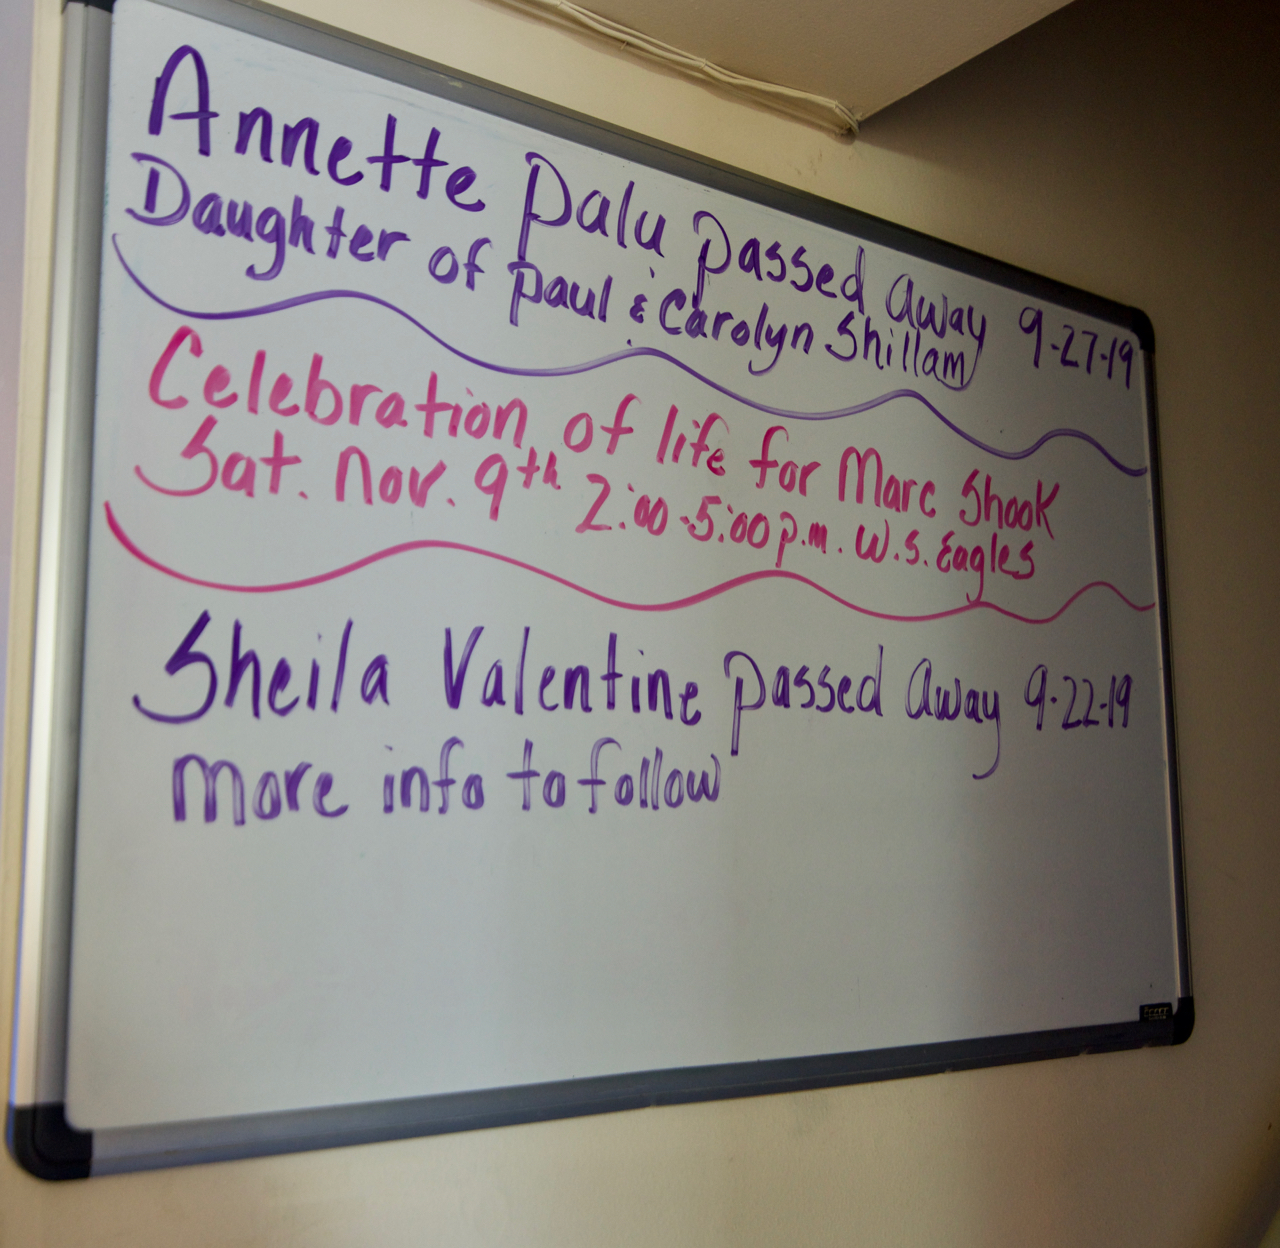 Annette Palu passed away 9-27-19
Daughter of Paul & Carolyn Shillam
Celebration of life for Marc Shook
Sat. Nov. 9th 2:00-5:00 p.m. W.S. Eagles
Sheila Valentine passed away 9-22-19
more info to follow